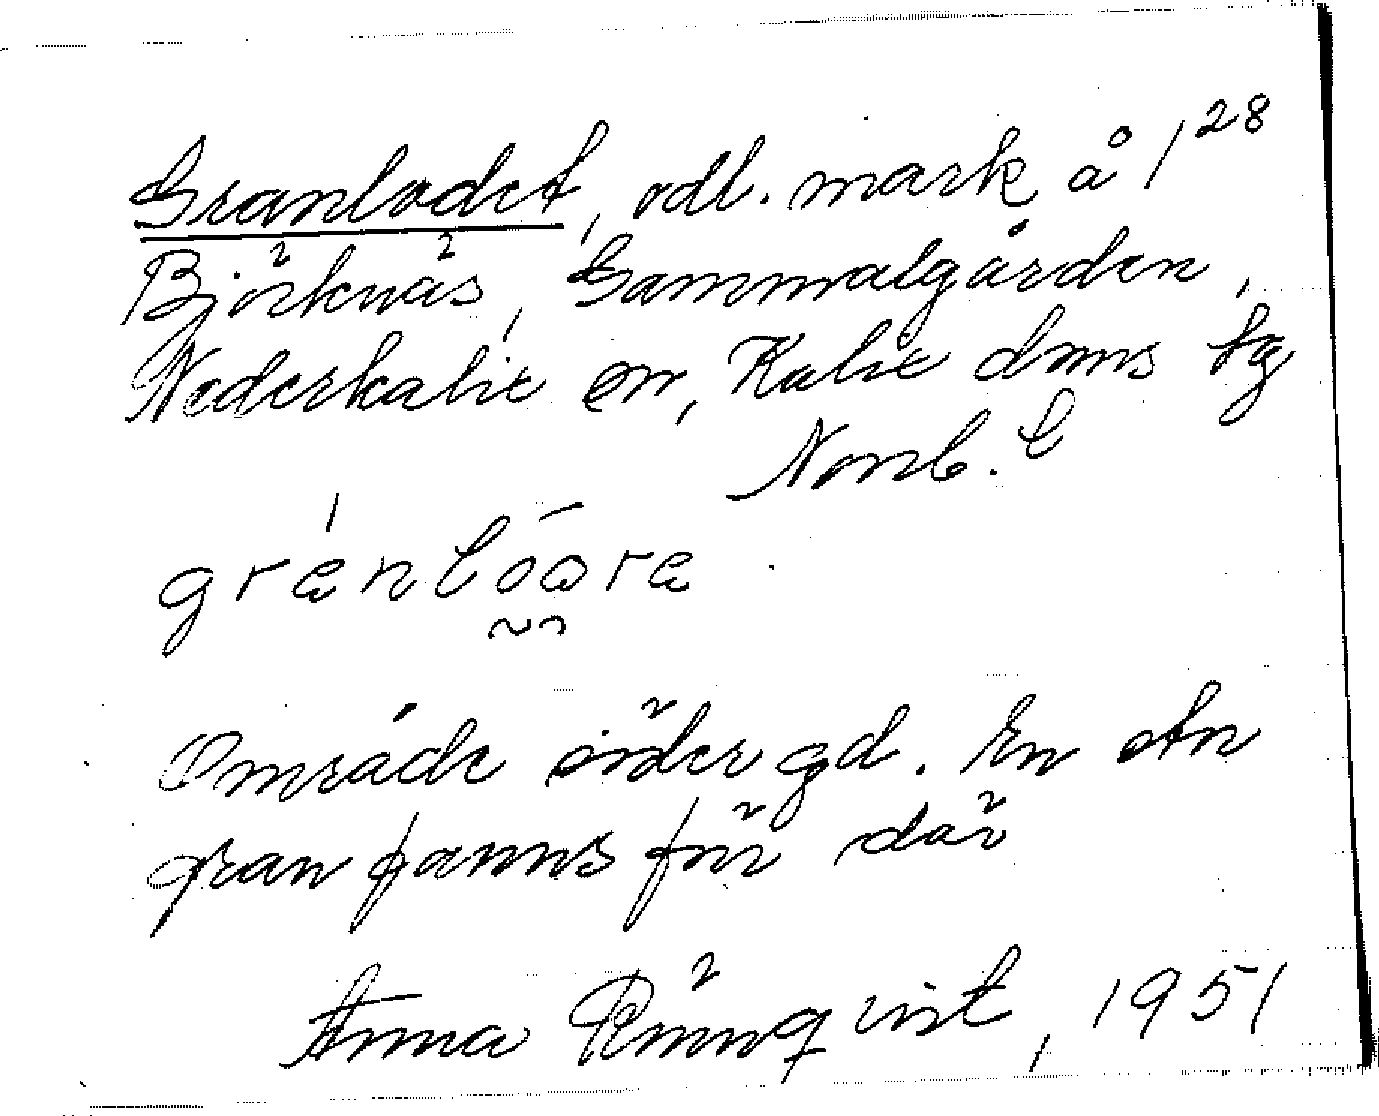 Granlodet, odl. mark å 1²⁸
Björknäs, Gammalgården,
Nederkalix by, Kalix dnms tg
Norrb. l
grænlōare
Område söder gd. En stn
gran fanns förr där
Anna Rönnqvist, 1951